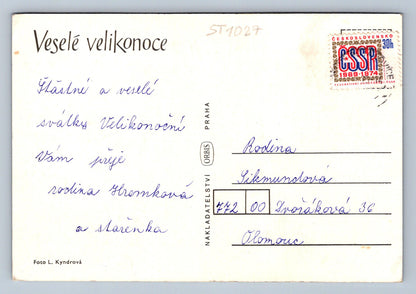 Veselé velikonoce
ST1027
ČESKOSLOVENSKO
30h
ČSSR
1969-1974
Štástné a veselé
svátky Velikonoční
Vám přeje
rodina Hromková
a stařenka
Foto L. Kyndrová
NAKLADATELSTVÍ ORBIS PRAHA
Rodina
Sikmundová
772 00 Dvořáková 36
Olomouc